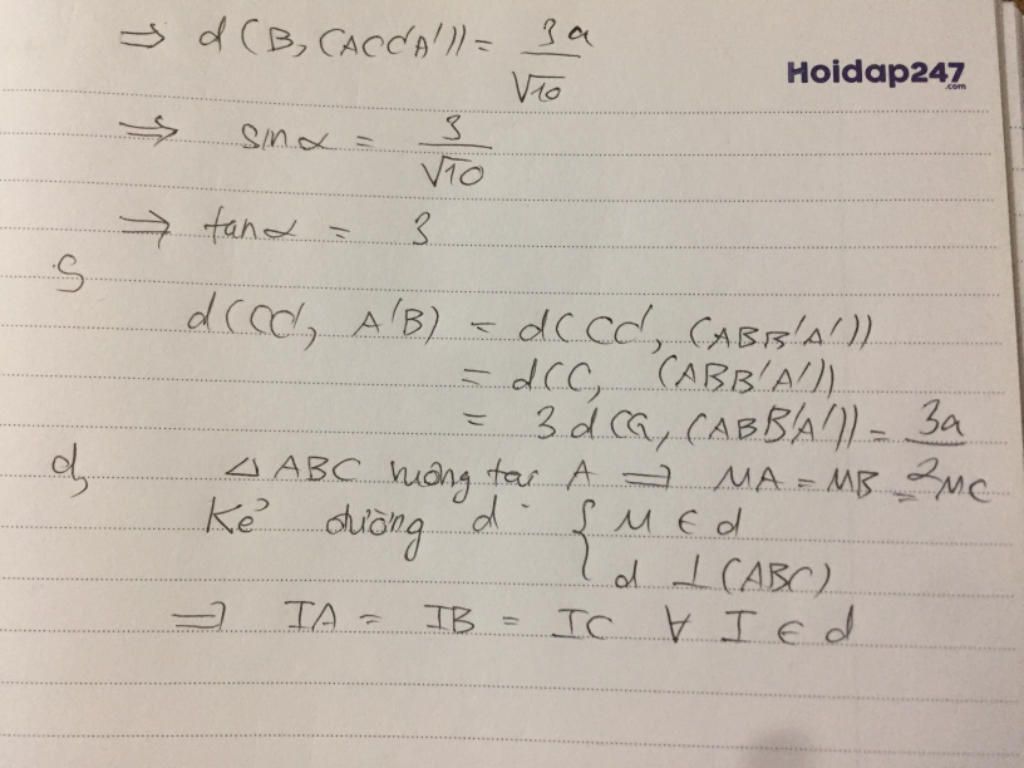 ⇒ d(B, (ACC'A')) = 3a/√10
Hoidap247
.com
⇒ sinα = 3/√10
⇒ tanα = 3
d(CC', A'B) = d(CC', (ABB'A'))
= d(C, (ABB'A'))
= 3d(G, (ABB'A')) = 3a/2
d, △ABC vuông tại A ⇒ MA = MB = MC
Kẻ đường d: { M ∈ d
d ⊥ (ABC)
⇒ IA = IB = IC ∀ I ∈ d